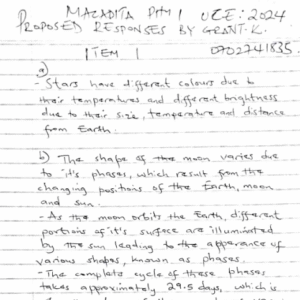 MAZADITA PHY 1 UCE: 2024
PROPOSED RESPONSES BY GRANT. K.
ITEM 1 0702741835
a)
- Stars have different colours due to
their temperatures and different brightness
due to their size, temperature and distance
from Earth.
b) The shape of the moon varies due
to it's phases, which result from the
changing positions of the Earth, moon
and sun.
- As the moon orbits the Earth, different
portions of it's surface are illuminated
by the sun leading to the apperance of
various shapes, known as phases.
- The complete cycle of these phases
takes approximately 29.5 days, which is